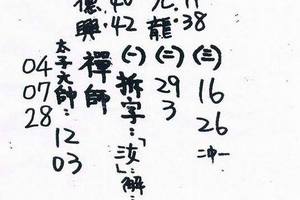 德興：40 42
元龍：11 38
(一) (二) (三)
禪師 拆字：「汝」解：
29 3
16 26 二中一
太子元帥：12 03
04 07 28